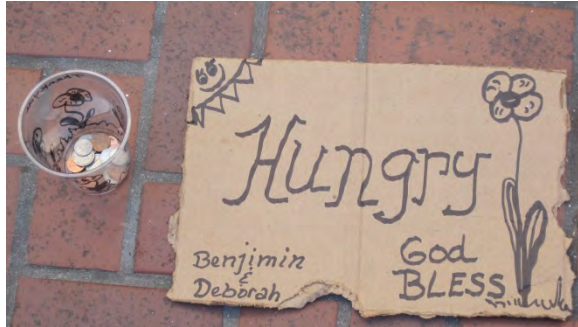 Hungry
Benjimin
&
Deborah
God
BLESS